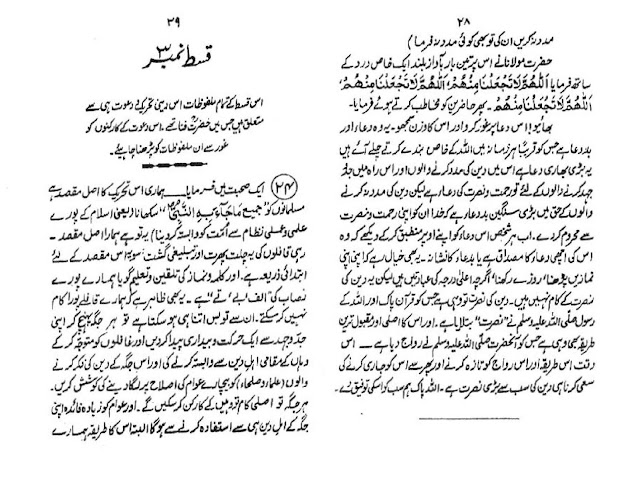 ۲۸
مدد نہ کریں ان کی تو بھی کوئی مدد نہ فرما)
حضرت مولانا نے اس پر تین بار آواز بلند ایک خاص درد کے
ساتھ فرمایا اَللّٰهُمَّ لَا تَجْعَلْنَا مِنْهُمْ، اَللّٰهُمَّ لَا تَجْعَلْنَا مِنْهُمْ،
اَللّٰهُمَّ لَا تَجْعَلْنَا مِنْهُمْ۔ پھر حاضرین کو مخاطب کرتے ہوئے فرمایا۔
بھائیو! اس دعا پر غور کرو اور اس کا وزن سمجھو۔ یہ وہ دعا اور
بددعا ہے جس کو قریباً ہر زمانہ میں اللہ کے خاص بندے کرتے چلے آئے ہیں
یہ بڑی بھاری دعا ہے اس میں دین کی مدد کرنے والوں اور اس راہ میں جد
جہد کرنے والوں کے لئے تو رحمت و نصرت کی دعا ہے لیکن دین کی مدد نہ کرنے
والوں کے حق میں بڑی سنگین بددعا ہے کہ خدا ان کو اپنی رحمت و نصرت
سے محروم کر دے۔ اب ہر شخص اس دعا کو اپنے اوپر منطبق کرکے دیکھے کہ وہ
اس کی اچھی دعا کا مصداق ہے یا بددعا کا نشانہ۔ یہ بھی خیال رہے کہ اپنی اپنی
نمازیں پڑھنا، روزے رکھنا، اگرچہ اعلیٰ درجہ کی عبادتیں ہیں لیکن یہ دین کی
نصرت کے کام نہیں ہیں۔ دین کی نصرت تو وہی ہے جس کو قرآن پاک اور اللہ کے
رسول صلی اللہ علیہ وسلم نے "نصرت" بتلایا ہے۔ اور اس کا اصلی اور مقبول ترین
طریقہ بھی وہی ہے جس کو آنحضرت صلی اللہ علیہ وسلم نے رواج دیا ہے — اس
وقت اس طریقہ اور اس رواج کو تازہ کرنے اور پھر سے اس کو جاری کرنے کی
سعی کرنا ہی دین کی سب سے بڑی نصرت ہے۔ اللہ پاک ہم سب کو اس کی توفیق دے۔
۲۹
قسط نمبر ۳
اس قسط کے تمام ملفوظات اس دینی تحریک دعوت ہی سے
متعلق ہیں جس میں حضرت فنا تھے۔ اس دعوت کے کارکنوں کو
غور سے ان ملفوظات کو پڑھنا چاہیئے۔
(۲۴) ایک صحبت میں فرمایا — ہماری اس تحریک کا اصل مقصد ہے
مسلمانوں کو "جمیع ما جاء به النبی" سکھانا (یعنی اسلام کے پورے
علمی و عملی نظام سے امت کو وابستہ کر دینا) یہ تو ہے ہمارا اصل مقصد۔
رہی قافلوں کی یہ چلت پھرت اور تبلیغی گشت، سو یہ اس مقصد کے لئے
ابتدائی ذریعہ ہے، اور کلمہ و نماز کی تلقین و تعلیم گویا ہمارے پورے
نصاب کی "الف، بے، تے" ہے۔ یہ بھی ظاہر ہے کہ ہمارے قافلے پورا کام
نہیں کر سکتے۔ ان سے تو بس اتنا ہی ہو سکتا ہے کہ ہر جگہ پہنچ کر اپنی
جد و جہد سے ایک حرکت و بیداری پیدا کر دیں اور غافلوں کو متوجہ کر کے
وہاں کے مقامی اہل دین سے وابستہ کرنے کی اور اس جگہ کے دین کی فکر کرنے
والوں (علماء و صلحاء) کو بیچارے عوام کی اصلاح پر لگا دینے کی کوشش کریں۔
ہر جگہ پر اصلی کام تو وہیں کے کارکن کر سکیں گے۔ اور عوام کو زیادہ فائدہ اپنی
جگہ کے اہل دین ہی سے استفادہ کرنے سے ہوگا البتہ اس کا طریقہ ہمارے